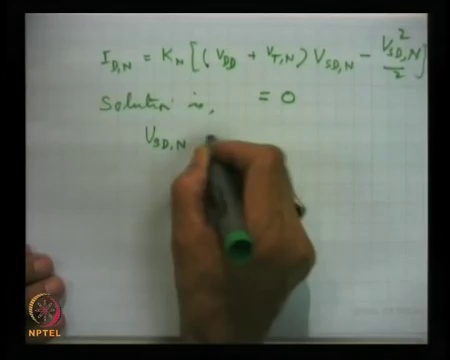 I_{D,N} = K_n [ ( V_{DD} + V_{T,N} ) V_{SD,N} - \frac{V_{SD,N}^2}{2} ]
Solution is, = 0
V_{SD,N}
NPTEL